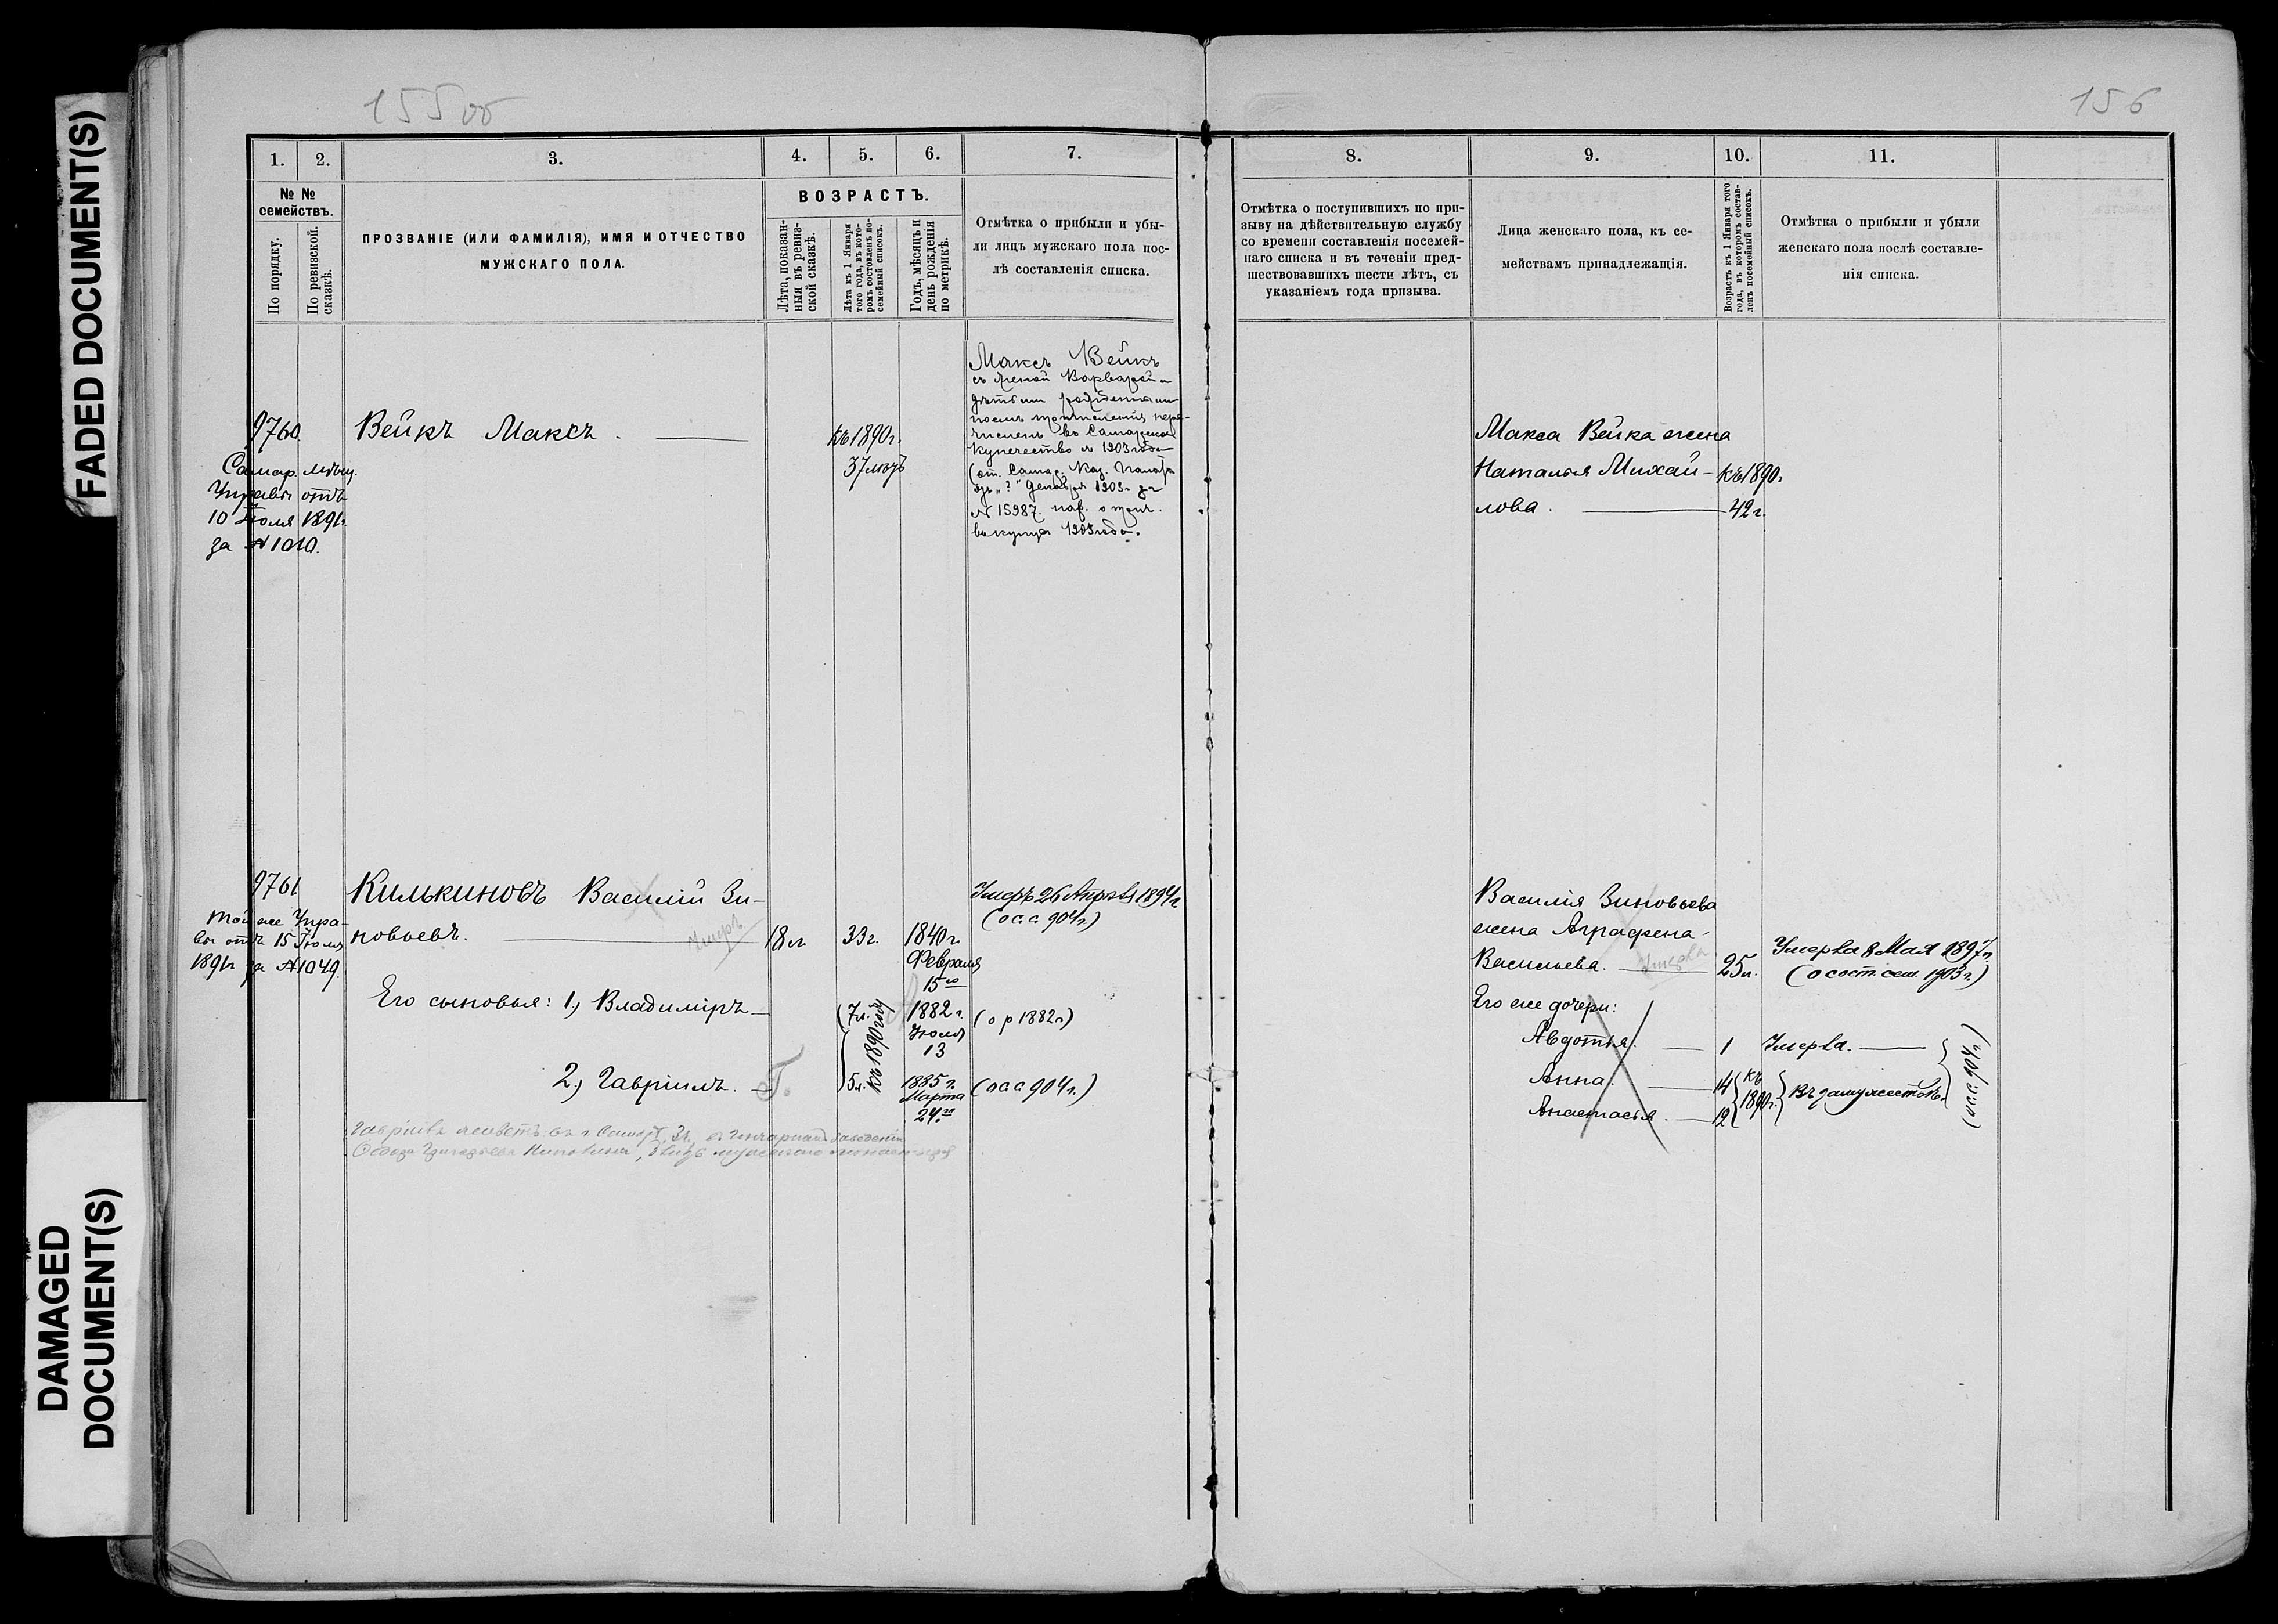 FADED DOCUMENT(S)
DAMAGED
DOCUMENT(S)
155об
1.
2.
3.
4.
5.
6.
7.
№ №
семействъ.
По порядку.
По ревизской.
сказкѣ.
ПРОЗВАНІЕ (ИЛИ ФАМИЛІЯ), ИМЯ И ОТЧЕСТВО
МУЖСКАГО ПОЛА.
ВОЗРАСТЪ.
Лѣта, показан-
ныя въ ревиз-
ской сказкѣ.
Лѣта къ 1 Января
того года, въ кото-
ромъ составленъ по-
семейный списокъ.
Годъ, мѣсяцъ и
день рожденія
по метрикѣ.
Отмѣтка о прибыли и убы-
ли лицъ мужскаго пола пос-
лѣ составленія списка.
9760
Самар. мѣщ.
Управы отъ
10 Іюля 1891г.
за № 1010.
Вейкъ Максъ.
къ 1890г.
37 лѣтъ
Максъ Вейкъ
съ женой Варварой и
дѣтьми рожденными
послѣ причисленія, пере-
численъ въ Самарское
купечество съ 1903 года
(от. Самар. Каз. Палаты
"?" Декабря 1903г. за
№ 15987.
въ купцы 1903 года.
9761
Той же Упра-
вы отъ 15 Іюля
1891г. за № 1049.
Килькиновъ Василій Зи-
новьевъ.
Умеръ
18 л.
33г.
1840г.
Февраля
15го
Умеръ 26 Апрѣля 1894г.
(о с с 904г.)
Его сыновья: 1,) Владиміръ
7л.
къ 1890 году
1882г.
Іюля
13
(о р 1882г.)
2,) Гавріилъ.
Г.
5л.
1885г.
Марта
24го
(о с с 904г.)
Гавріилъ живетъ въ г.
156
8.
9.
10.
11.
Отмѣтка о поступившихъ по при-
зыву на дѣйствительную службу
со времени составленія посемей-
наго списка и въ теченіи пред-
шествовавшихъ шести лѣтъ, съ
указаніемъ года призыва.
Лица женскаго пола, къ се-
мействамъ принадлежащія.
Возрастъ къ 1 Января того
года, въ которомъ состав-
ленъ посемейный списокъ.
Отмѣтка о прибыли и убыли
женскаго пола послѣ составле-
нія списка.
Макса Вейка жена
Наталья Михай-
лова.
къ 1890г.
42г.
Василія Зиновьева
жена Аграфена
Васильева.
Умерла
25л.
Умерла 8 Мая 1897г.
(о сост. сем. 1903г.)
Его же дочери:
Авдотья.
1
Умерла.
Анна.
14
къ
1890г.
Въ замужествѣ.
Анастасья.
12
(о с с. 904г.)